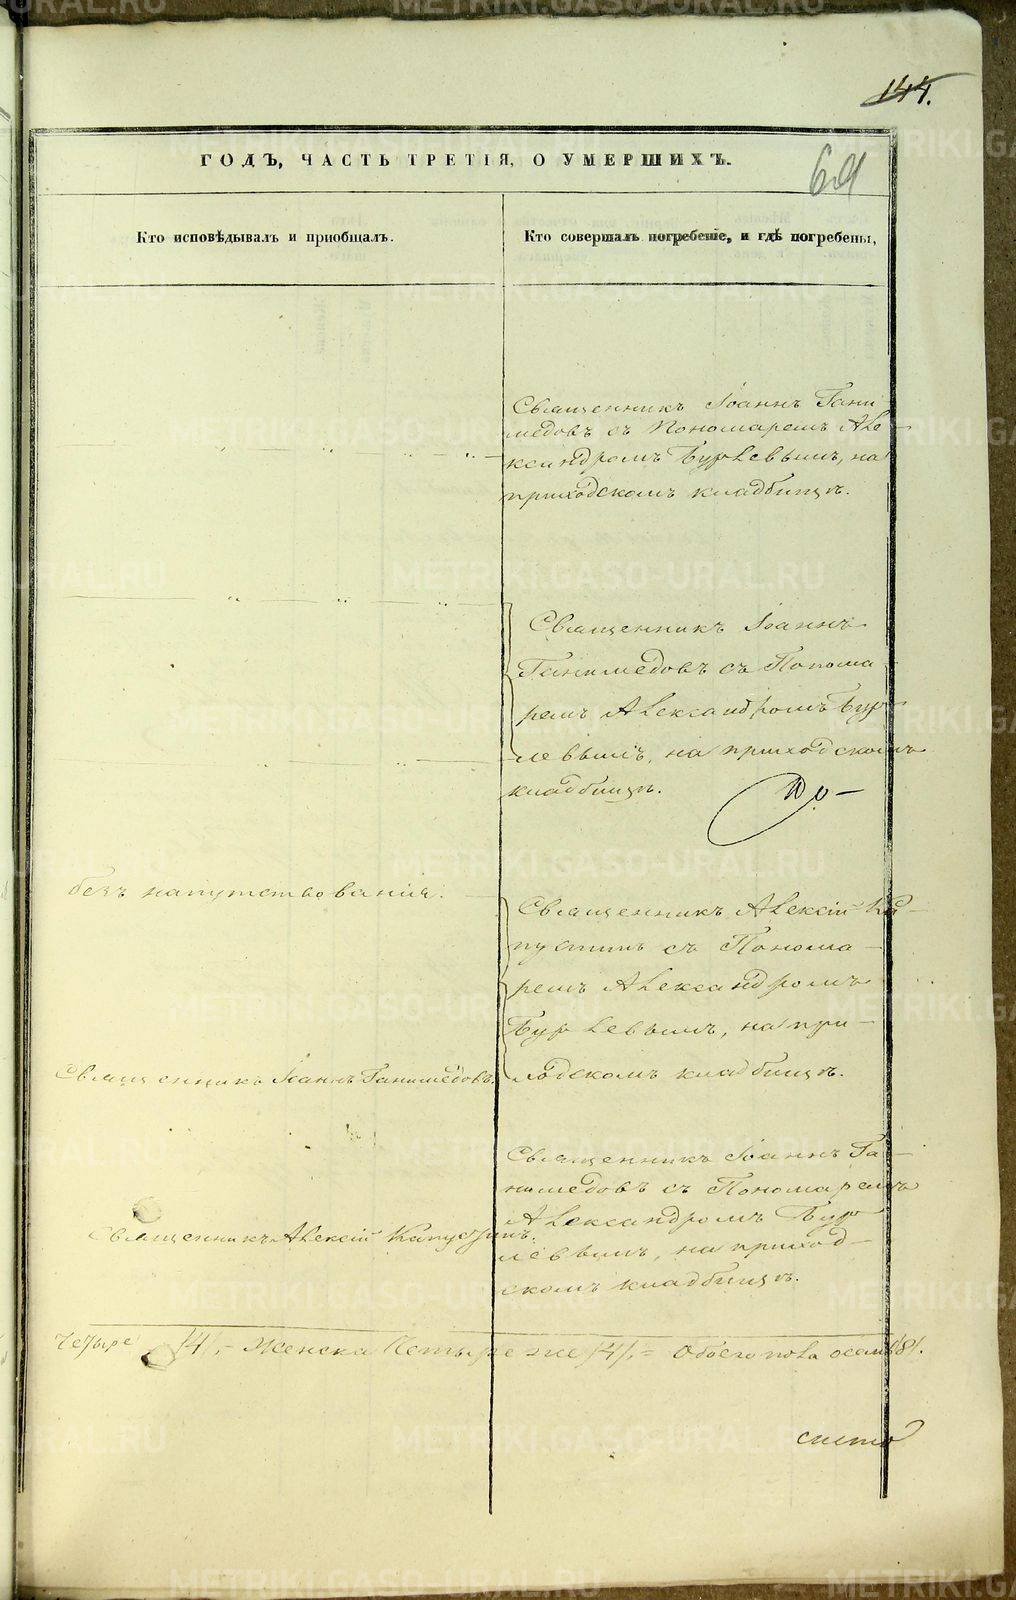 144.
ГОДЪ, ЧАСТЬ ТРЕТІЯ, О УМЕРШИХЪ.
Кто исповѣдывалъ и пріобщалъ.
Кто совершалъ погребеніе, и гдѣ погребены,
Священникъ Іоаннъ Гани
медовъ съ Пономаремъ Але
ксандромъ Бурлевымъ, на
приходскомъ кладбищѣ.
Священникъ Іоаннъ
Ганимедовъ съ Понома
ремъ Александромъ Бур
левымъ, на приходскомъ
кладбищѣ.
безъ напутствованія.
Священникъ Алексій Ка
пустинъ съ Понома
ремъ Александромъ
Бурлевымъ, на при
ходскомъ кладбищѣ.
Священникъ Іоаннъ Ганимедовъ.
Священникъ Іоаннъ Га
нимедовъ съ Пономаремъ
Александромъ Бур
левымъ, на приход
скомъ кладбищѣ.
Священникъ Алексій Капустинъ.
четыре /4/, Женска Четыре же /4/, Обоего пола осемь /8/.
METRIKI.GASO-URAL.RU